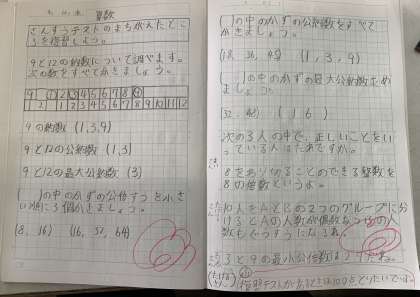 算数
さんすうテストのまちがえたとこ
ろを復習しよう。
9と12の約数について調べます。
次の数をすべてかきましょう。
9 ① 2 ③ 4 5 6 7 8 ⑨
12 1 2 3 4 5 6 7 8 9 10 11 12
9の約数 (1,3,9)
9と12の公約数 (1,3)
9と12の最大公約数 (3)
( )の中のかずの公倍すうを小さ
い順に3個かきましょう。
(8, 16) (16, 32, 64)
( )の中のかずの公約数をすべて
かきましょう。
(18, 36, 45) (1, 3, 9)
( )の中のかずの最大公約数をかき
ましょう。
(32, 48) (16)
次の3人の中で、正しいことをい
っている人はだれですか。
8をわり切ることのできる整数を
8の倍数というよ。
10人をAとBの2つのグループに分
けるとAの人数が偶数なら
数もぐうすうになるよ。
3と9の最小公倍数は